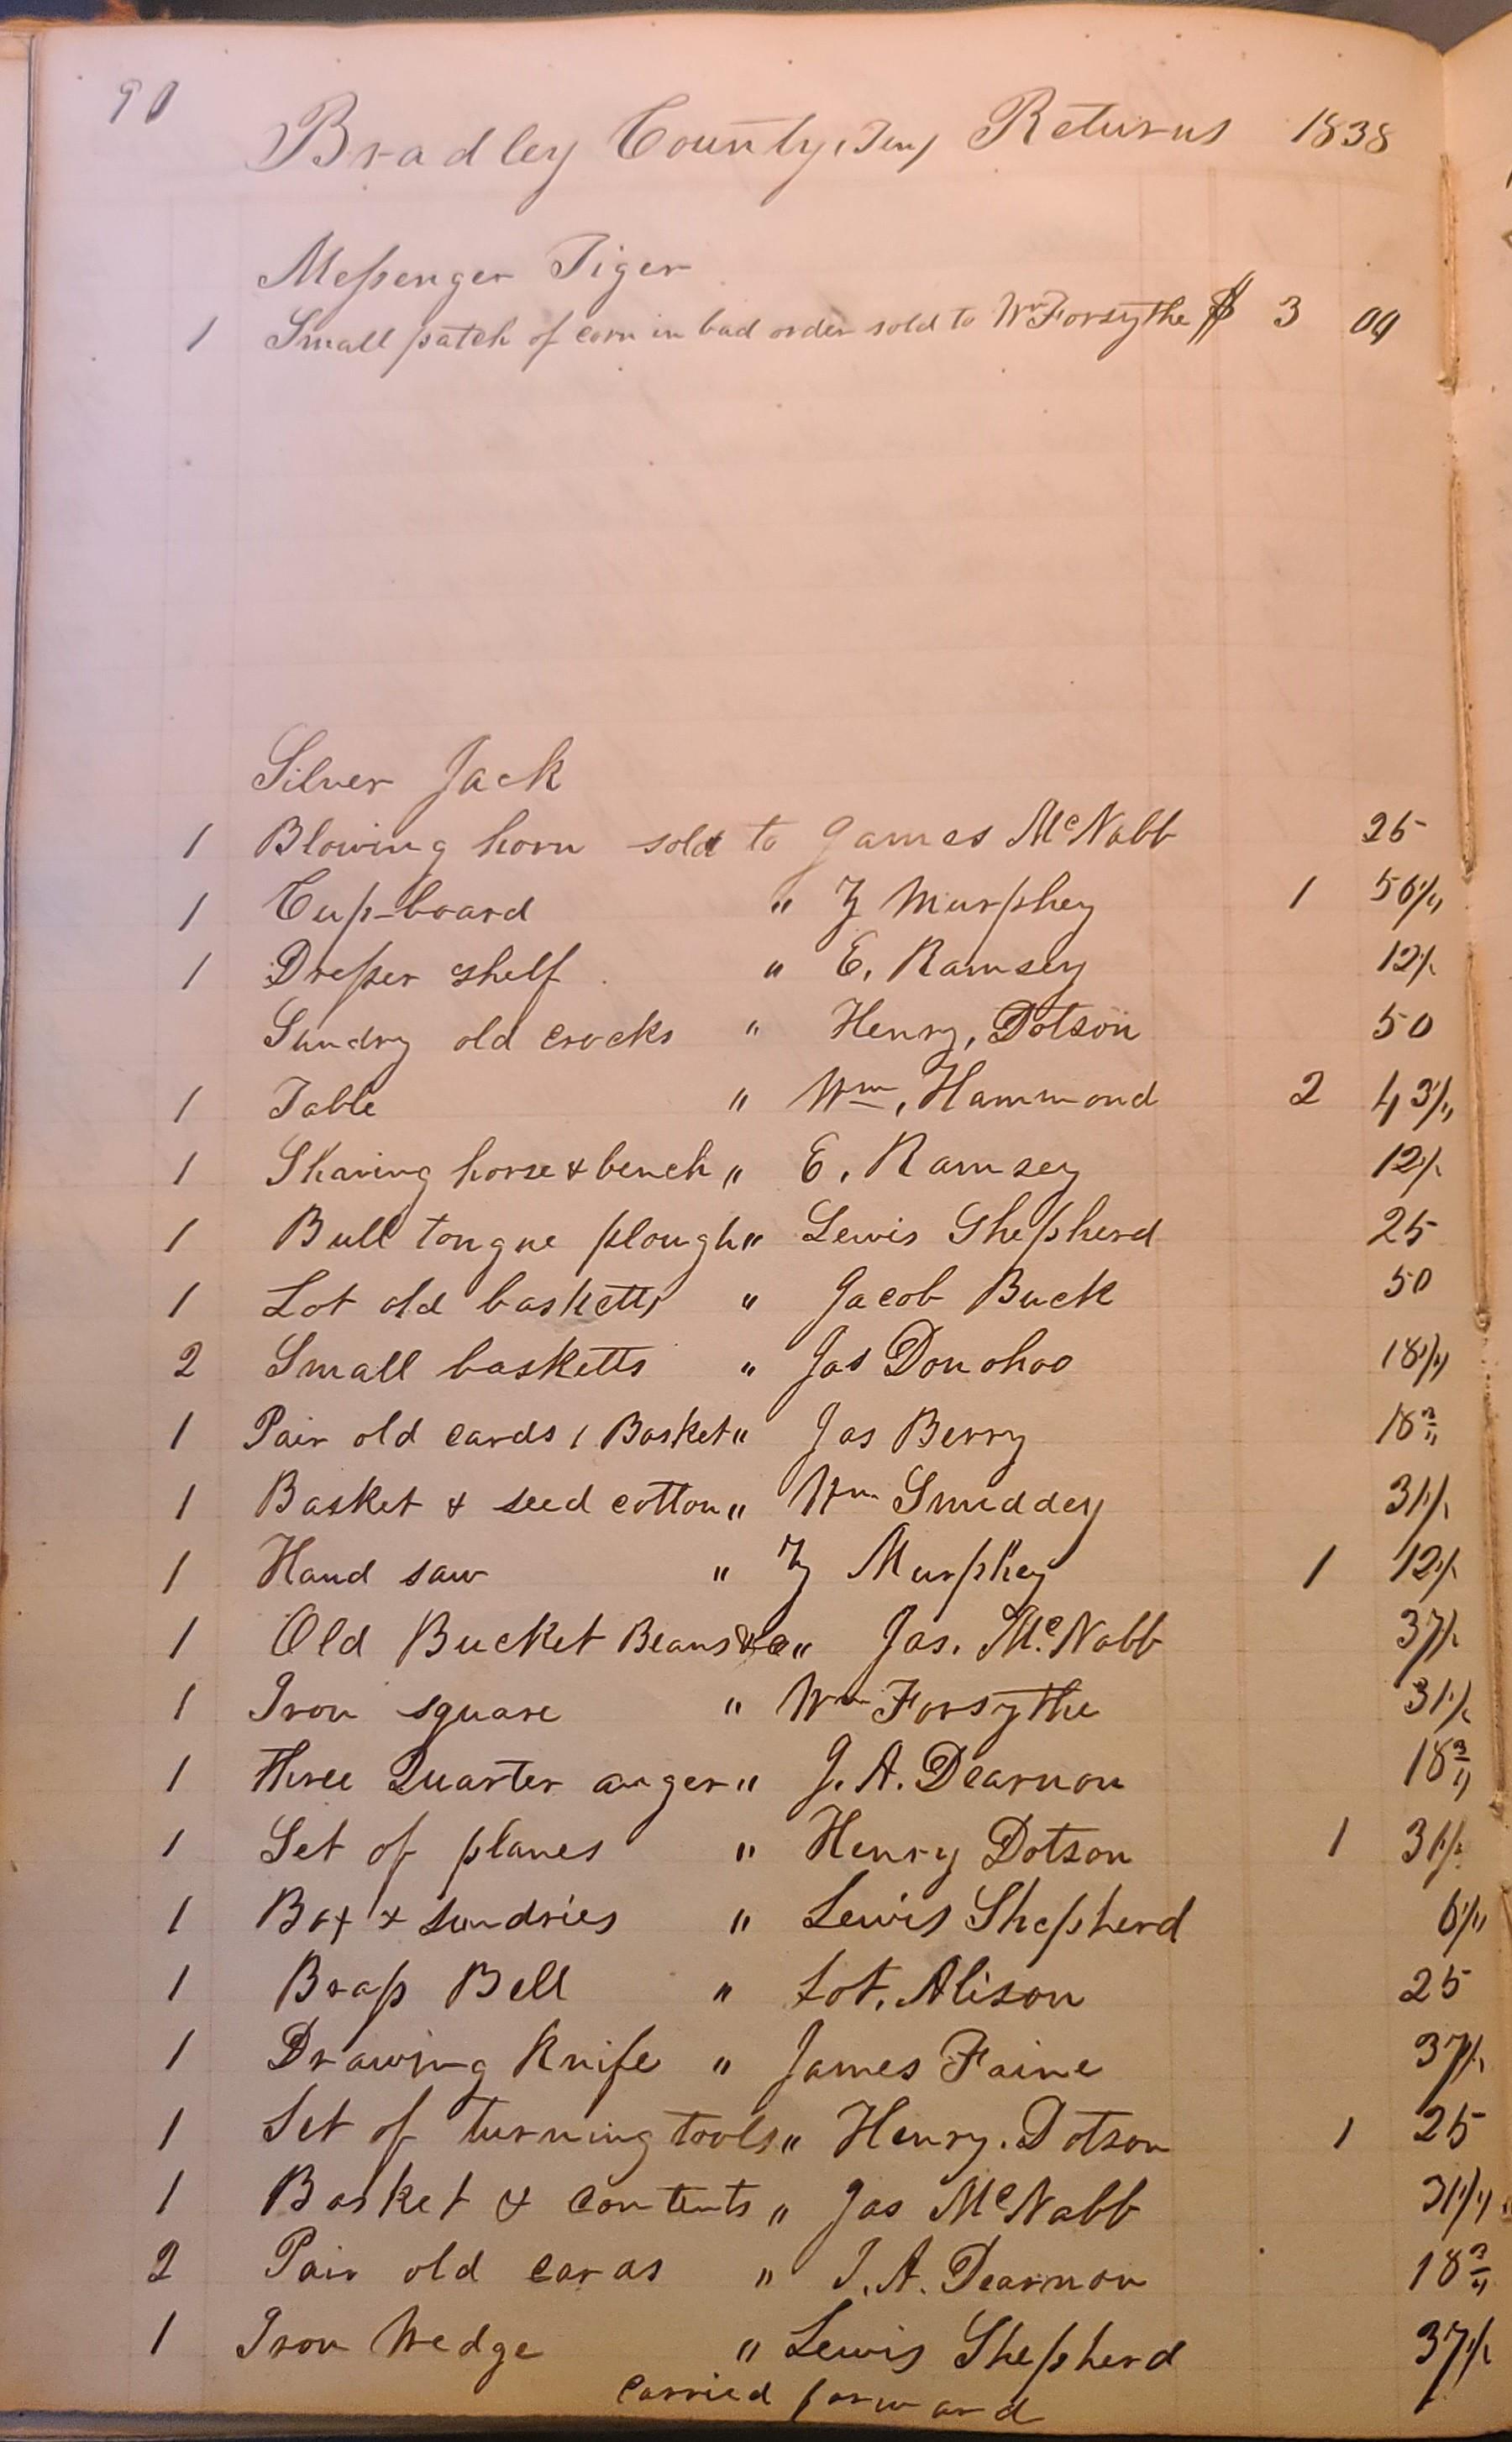 90
Bradley County, Ten, Returns 1838
Messenger Tiger
1 Small patch of corn in bad order sold to Wm Forsythe $ 3 00
Silver Jack
1 Blowing horn sold to James McNabb 25
1 Cup-board " Z Murphey 1 56 1/4
1 Dresser shelf " E. Ramsey 12 1/2
Sundry old crocks " Henry, Dotson 50
1 Table " Wm, Hammond 2 43 3/4
1 Shaving horse & bench " E. Ramsey 12 1/2
1 Bull tongue plough " Lewis Shepherd 25
1 Lot old basketts " Jacob Buck 50
2 Small basketts " Jas Donohoo 18 3/4
1 Pair old cards 1 Basket " Jas Berry 18 3/4
1 Basket & seed cotton " Wm Smiddey 31 1/4
1 Hand saw " Z Murphey 1 12 1/2
1 Old Bucket Beans &c " Jas. McNabb 37 1/2
1 Iron square " Wm Forsythe 31 1/4
1 three Quarter auger " J. A. Dearmon 18 3/4
1 Set of planes " Henry Dotson 1 31 1/4
1 Box & sundries " Lewis Shepherd 6 1/4
1 Brass Bell " Alison 25
1 Drawing Knife " James Faine 37 1/2
1 Set of turning tools " Henry. Dotson 1 25
1 Basket & contents " Jas McNabb 31 1/4
2 Pair old cards " J. A. Dearmon 18 3/4
1 Iron Wedge " Lewis Shepherd 37 1/2
carried forward